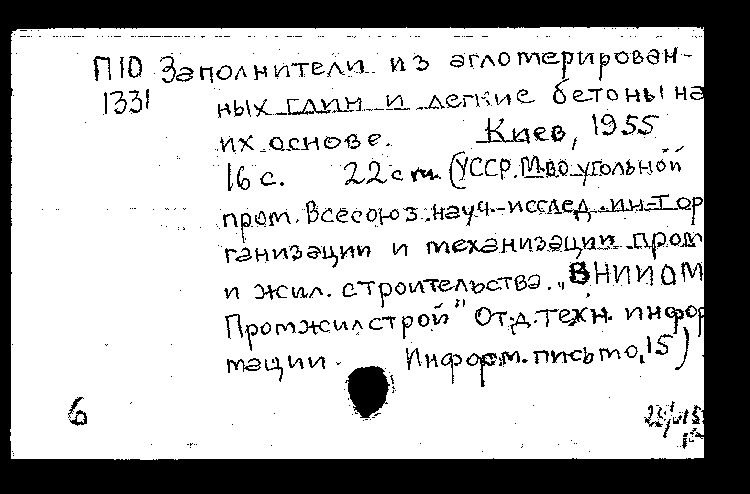 П10 Заполнители из аглотерирован-
1331 ных глин и легкие бетоны на
их основе. Киев, 1955
16 с. 22 ст. (УССР. М-во угольной
пром. Всесоюз. науч.-исслед. ин-т ор
ганизации и механизации пром
и жил. строительства. „ВНИИОМ
Промжилстрой" Отд. техн. инфор
мации. Информ. письмо, 15)
6